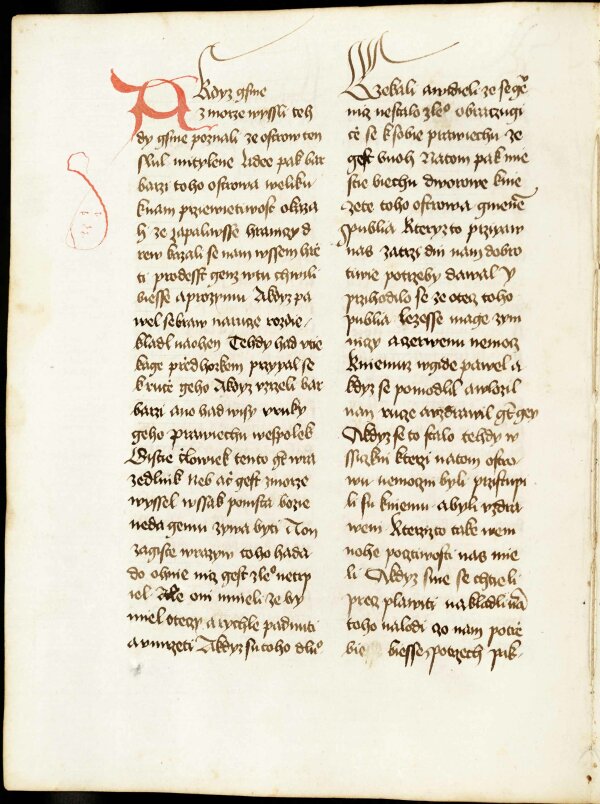 A Kdyz gsme
z morze wyssli teh
dy gsme poznali ze ostrow ten
slul mitylene Lidee pak bar
barzi toho ostrowa weliku
knam przewietiwost okaza
li ze zapalywsse hranizy d
rew kazali se nam wssem hrie
ti pro desst genz w tu chwili
biesse a pro zymu Akdyz pa
wel sebraw na ruze rozdie
kladl na ohen Tehdy had ute
kage przed horkem przypal se
k ruce geho Akdyz uzrzeli bar
barzi ano had wisy v ruky
geho prawiechu wespolek
Gistie clowiek tento gt wra
zedlnik neb ac gest z morze
wyssel wssak pomsta bozie
neda gemu zywu byti A on
zagiste wrazyw toho hada
do ohnie niz gest zleo netrp
iel Ale oni mnieli ze by
miel oteczy a rychle padnuti
a umrzeti Akdyz su toho dluo
Czekali a widieli ze se ge
niz nestalo zleo obratczugi
ce se k sobie prawiechu ze
gest buoh Na tom pak mie
stie biechu dworowe knie
zete toho ostrowa gmene
Publia Kteryz to przigaw
nas za trzi dni nam dobro
tiwie potrzeby dawal Y
przihodilo se ze otecz toho
publia lezesse mage zym
niczy a czerwenu nemocz
K niemuz wgide pawel a
kdyz se pomodlil a wlozil
nan ruce uzdrawil gt gey
Akdyz se to stalo tehdy w
ssiczkni kterzi na tom ostro
wu nemoczni byli przistupi
li su k niemu a byli uzdra
weni Kterzizto take w em
nohe pocztiwosti nas mie
li Akdyz sme se chtieli
precz plawiti nakladli na
toho na lodi czo nam potrze
bie biesse Po trzech pak